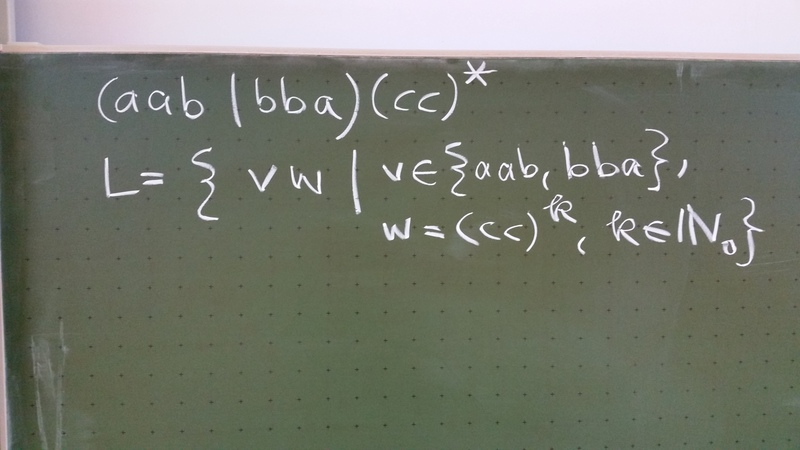 (aab | bba)(cc)*
L = { vw | v ∈ {aab, bba},
w = (cc)^k, k ∈ ℕ₀}